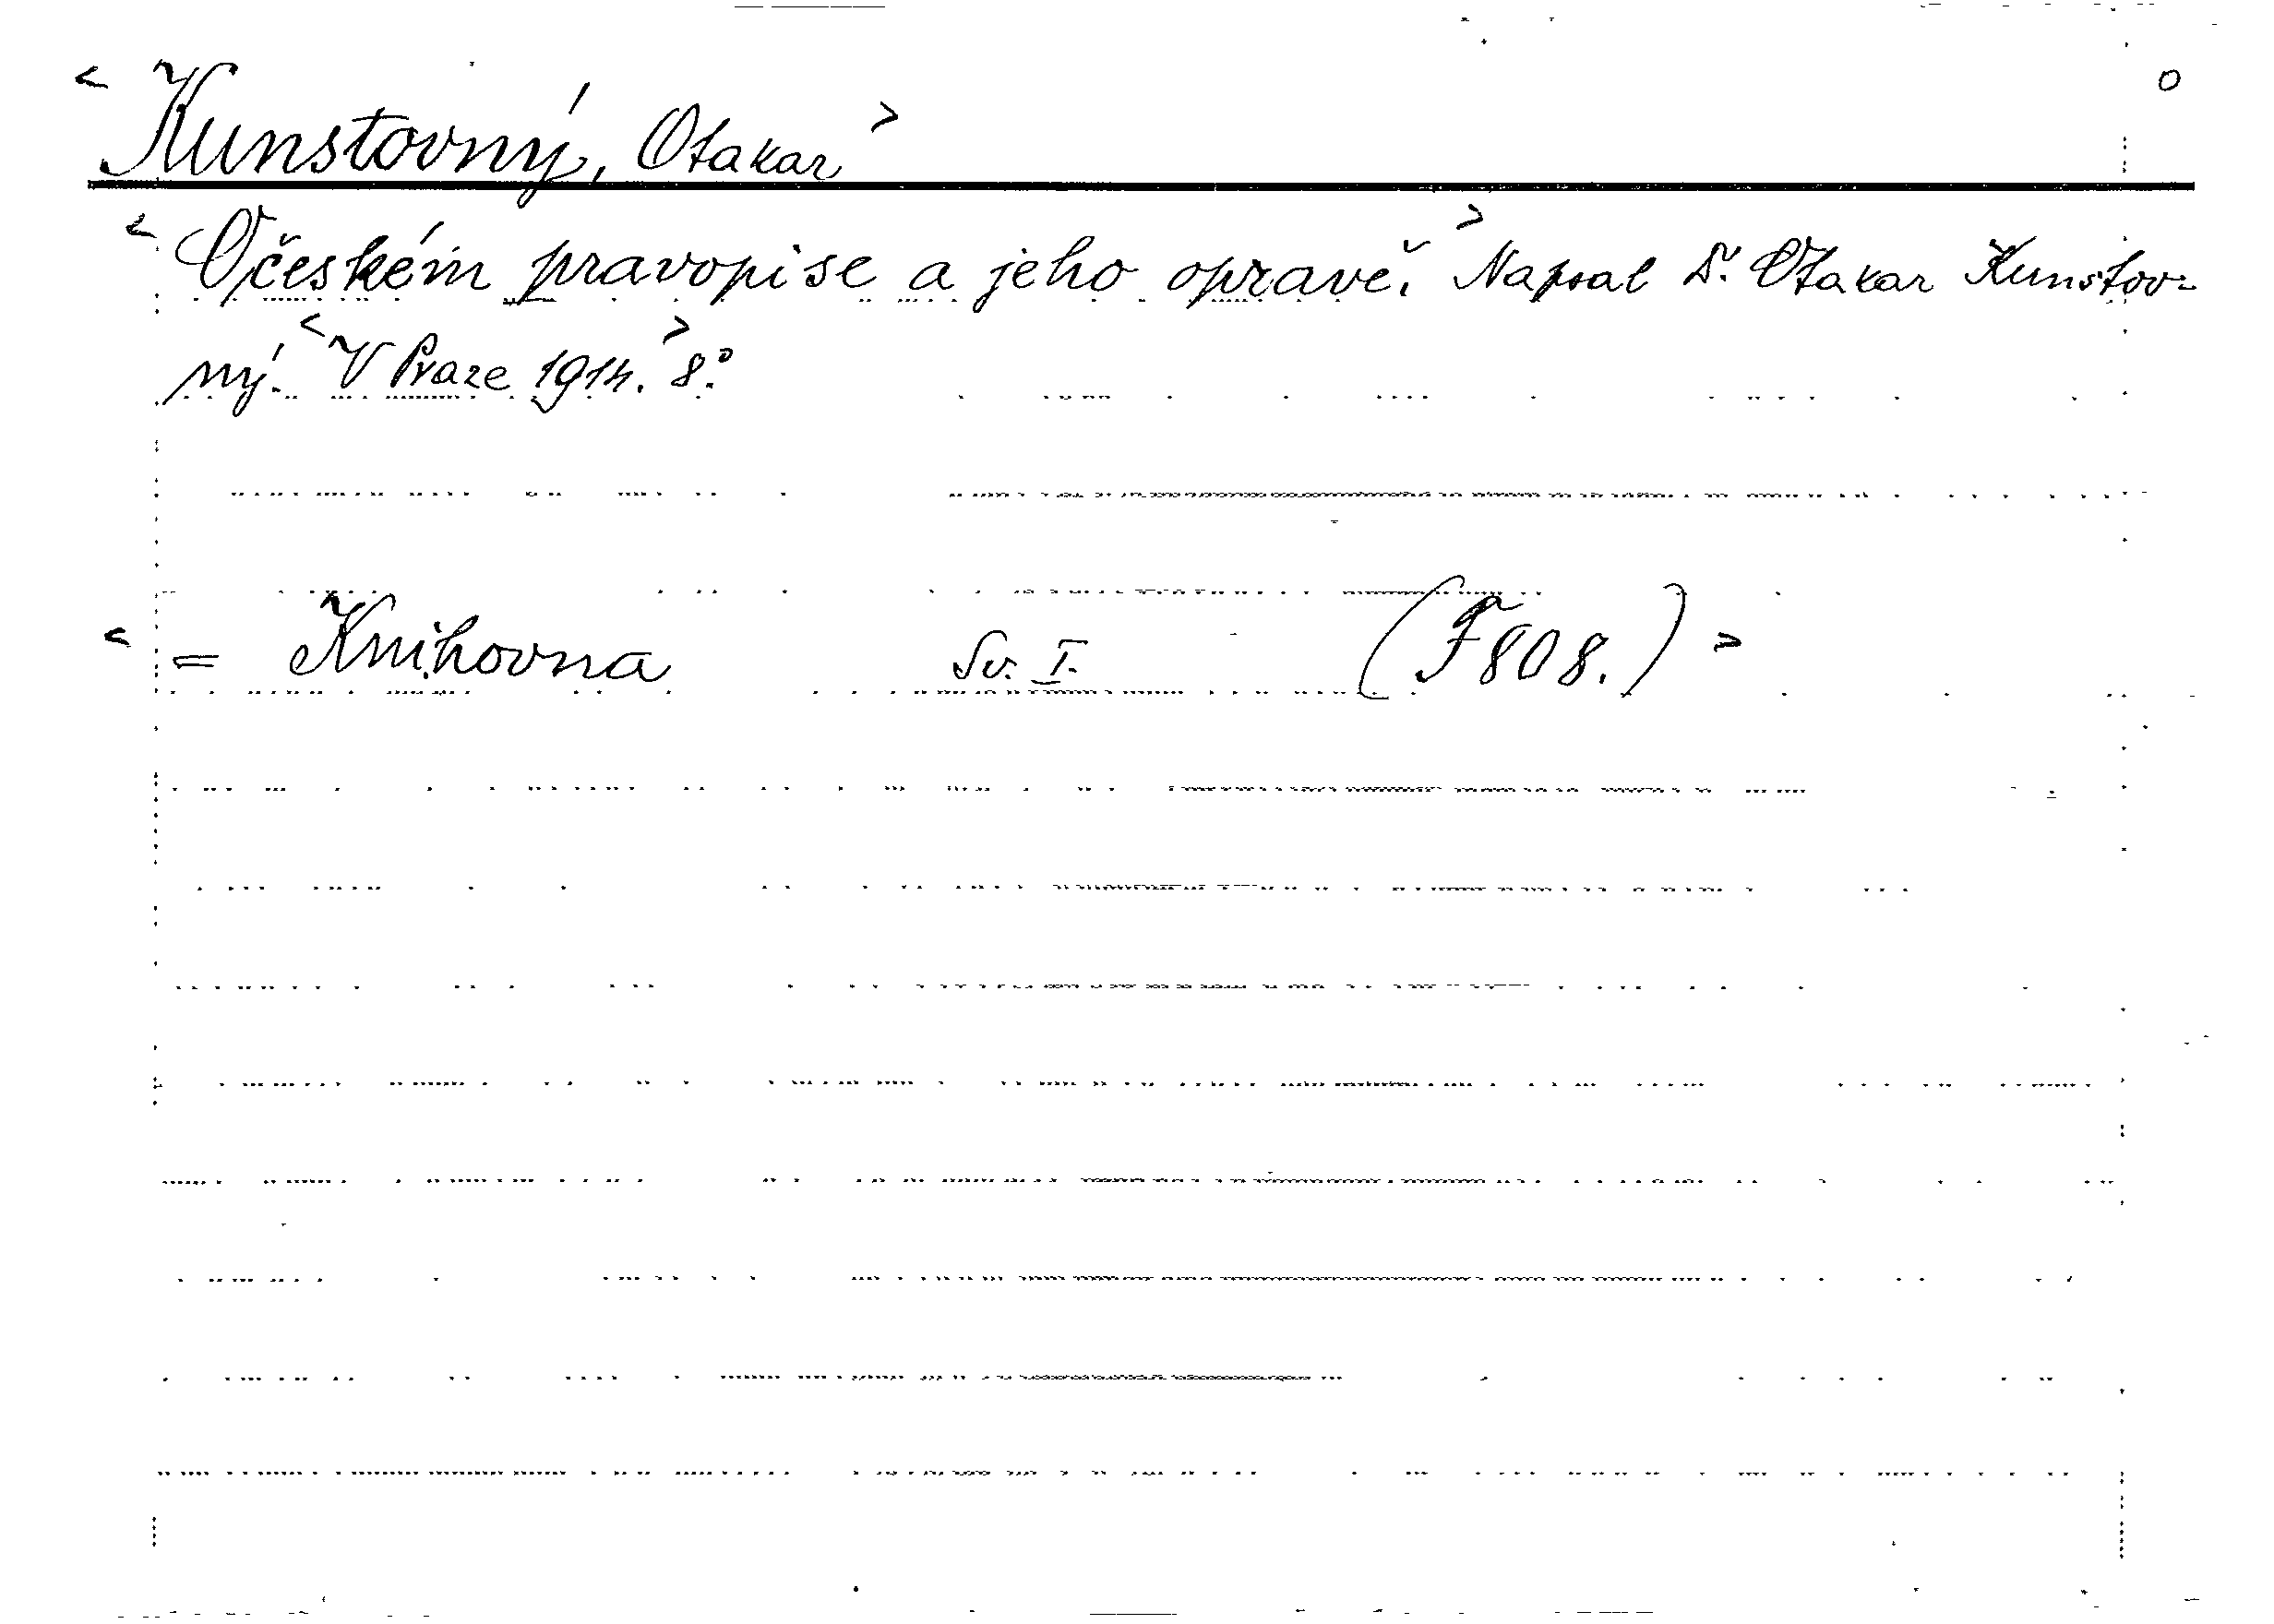 < Kunstovný, Otakar > o
< O českém pravopise a jeho opravě. > Napsal Dr. Otakar Kunstov-
ný. < V Praze 1914. > 8.°
< = Knihovna Sv. I. (F 808.) >